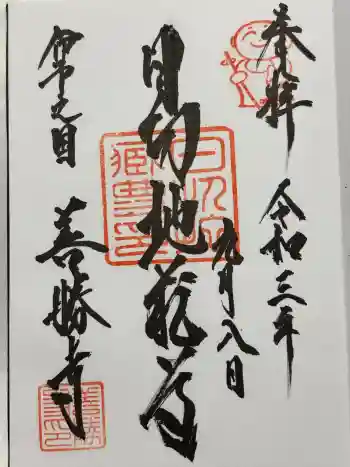 奉拝
令和三年
九月八日
日切地蔵尊
善勝寺